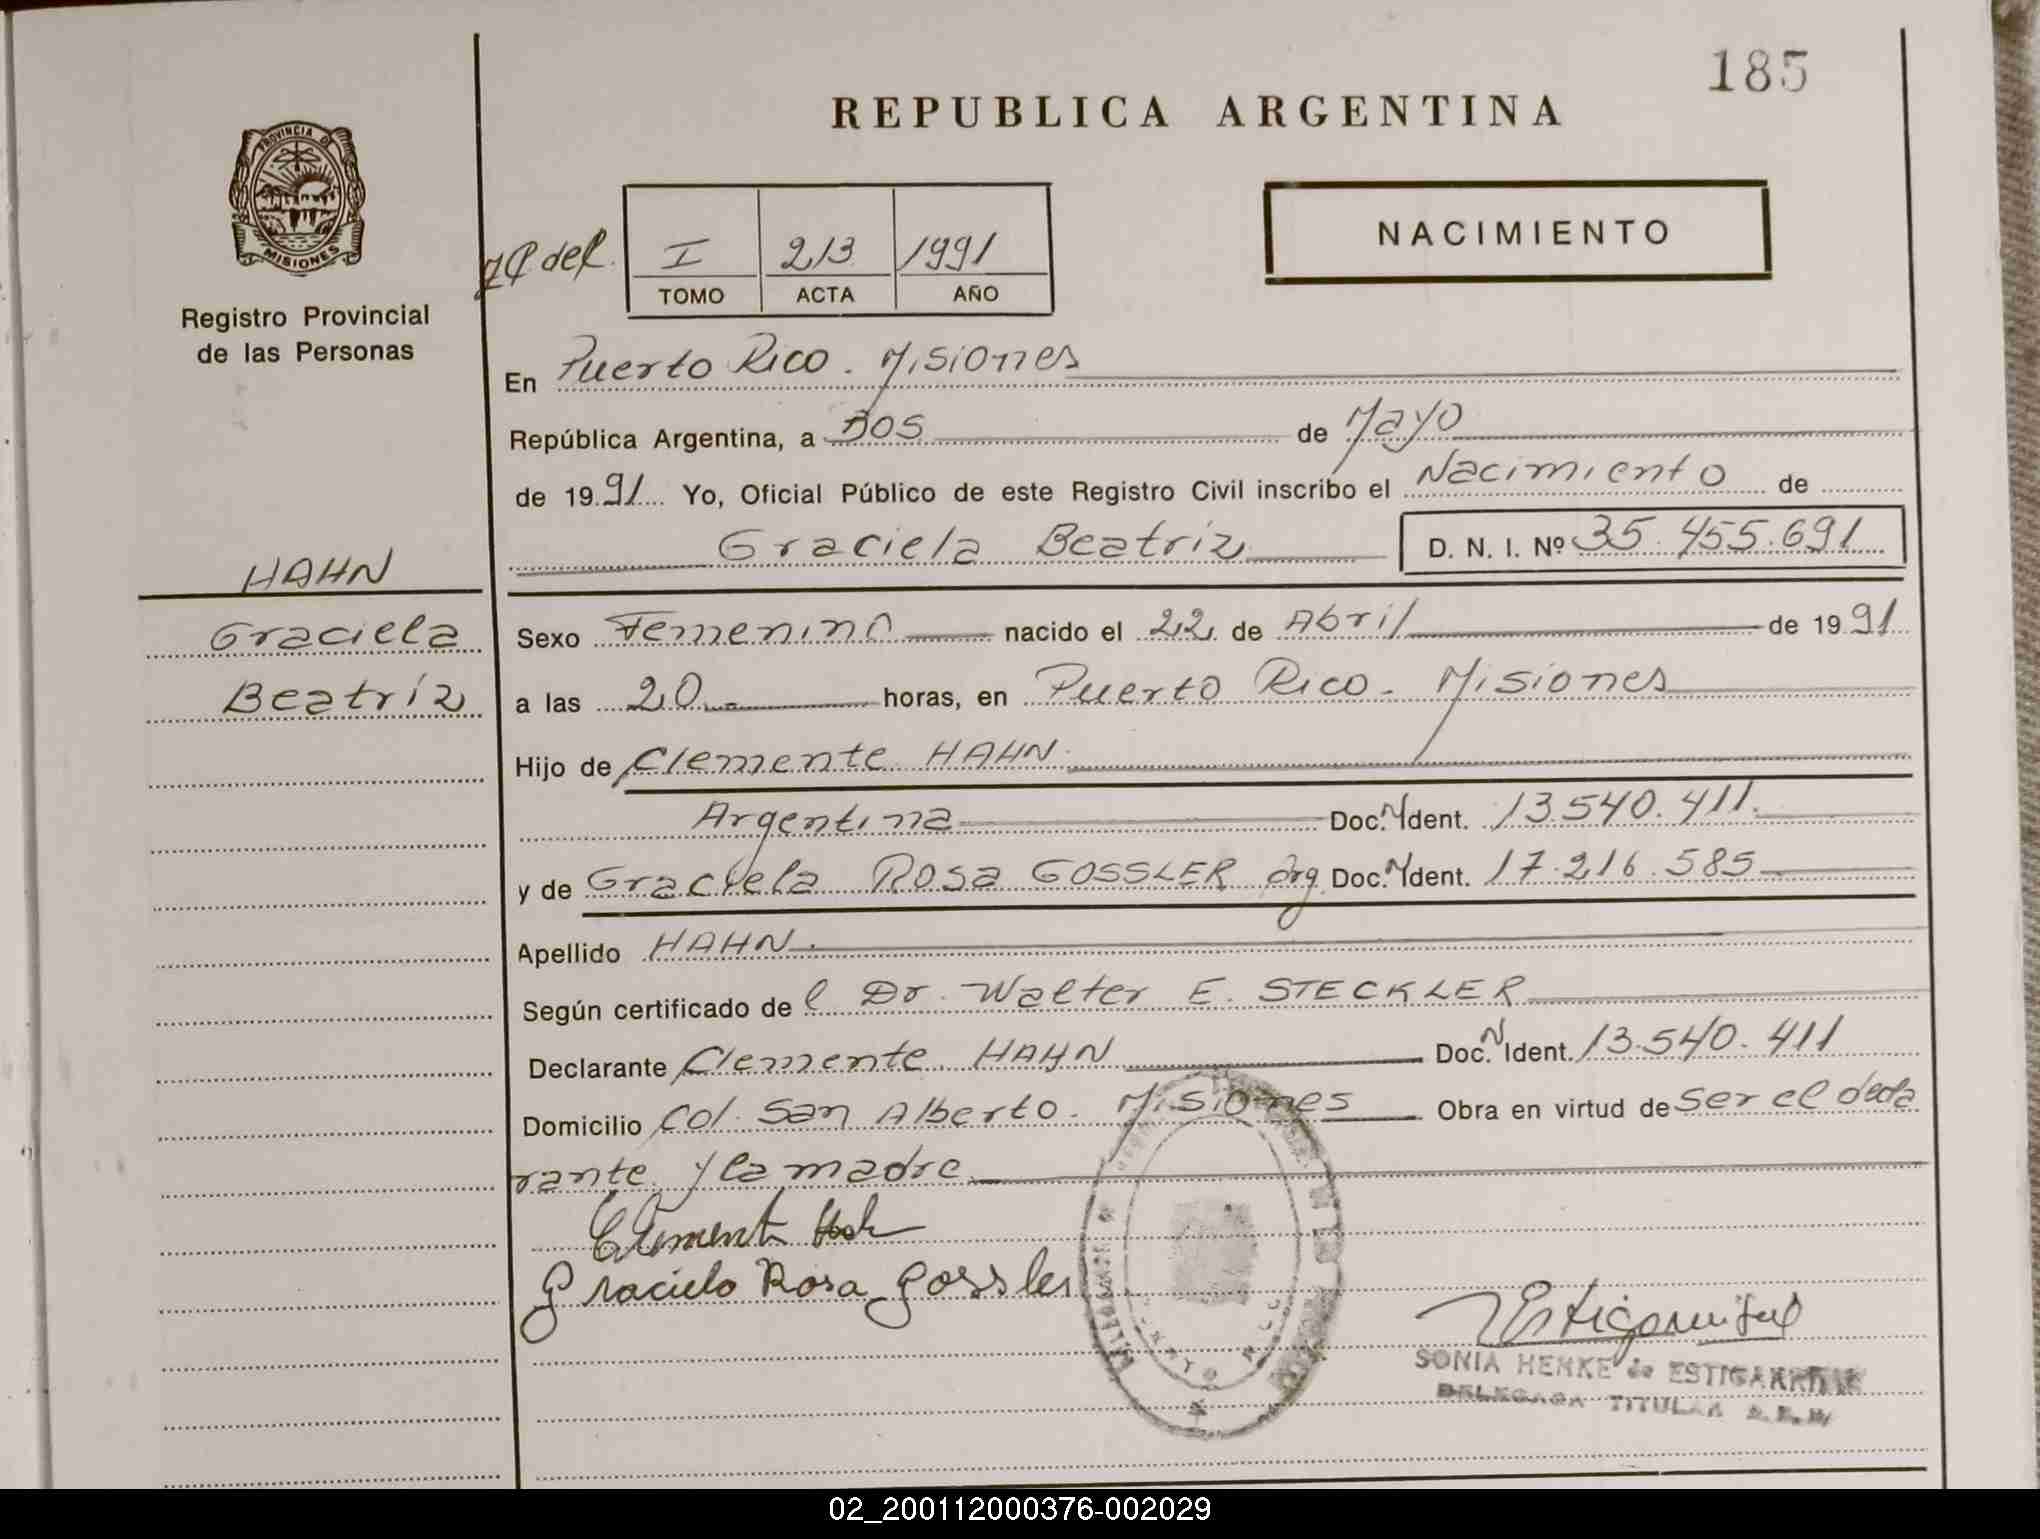 185
REPUBLICA ARGENTINA
PROVINCIA DE
MISIONES
Registro Provincial
de las Personas
NACIMIENTO
I 213 1991
TOMO ACTA AÑO
En Puerto Rico. Misiones
República Argentina, a Dos de Mayo
de 1991 Yo, Oficial Público de este Registro Civil inscribo el Nacimiento de
Graciela Beatriz D. N. I. Nº 35.455.691
HAHN
Graciela
Beatríz
Sexo Femenino nacido el 22 de Abril de 1991
a las 20 horas, en Puerto Rico - Misiones
Hijo de Clemente HAHN
Argentina Doc. N Ident. 13.540.411.
y de Graciela Rosa GOSSLER Arg Doc. N Ident. 17.216.585
Apellido HAHN.
Según certificado de l Dr. Walter E. STECKLER
Declarante Clemente HAHN Doc. N Ident. 13.540.411
Domicilio Col. San Alberto. Misiones Obra en virtud de ser el decla
rante y la madre
Clemente Hah
Graciela Rosa Gossler
SONIA HENKE de ESTIGARRIBIA
DELEGADA TITULAR
02_200112000376-002029